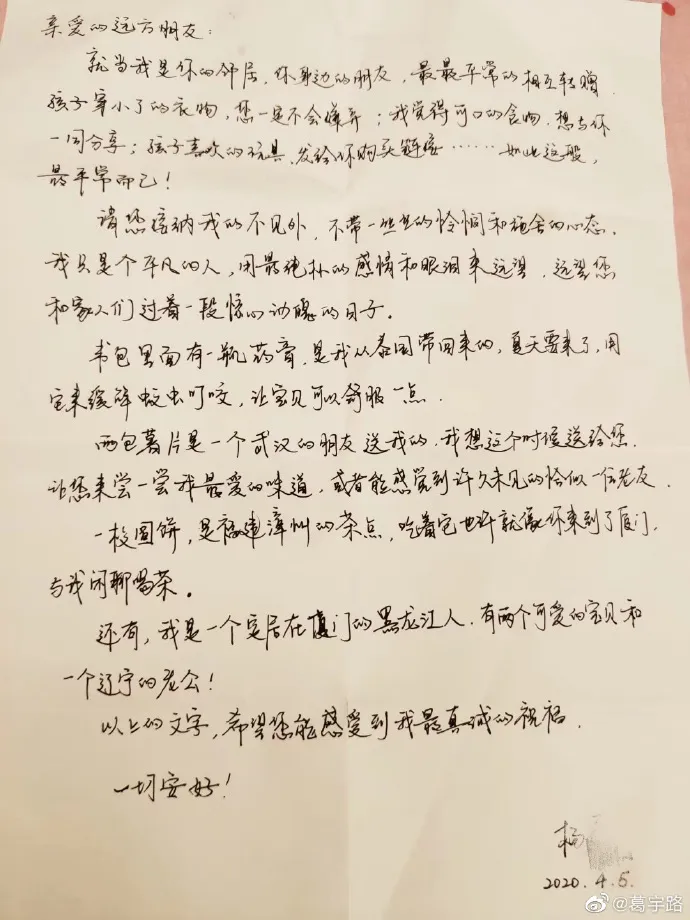 亲爱的远方朋友：
就当我是你的邻居，你身边的朋友，最最平常的相互转赠，
孩子穿小了的衣物，您一定不会嫌弃；我觉得可口的食物，想与你
一同分享；孩子喜欢的玩具，发给你购买链接……如此这般，
最平常而已！
请您接纳我的不见外，不带一丝丝的怜悯和施舍的心态。
我只是个平凡的人，用最纯朴的感情和眼泪来远望，远望您
和家人们过着一段惊心动魄的日子。
书包里面有一瓶药膏，是我从泰国带回来的，夏天要来了，用
它来缓解蚊虫叮咬，让宝贝可以舒服一点。
两包薯片是一个武汉的朋友送我的，我想这个时候送给您，
让您来尝一尝我最爱的味道，或者能感觉到许久未见的恰似一位老友。
一枚圆饼，是福建漳州的茶点，吃着它也许就像你来到了厦门，
与我闲聊喝茶。
还有，我是一个定居在厦门的黑龙江人，有两个可爱的宝贝和
一个辽宁的老公！
以上的文字，希望您能感受到我最真诚的祝福。
一切安好！
杨
2020.4.5.
@葛宇路